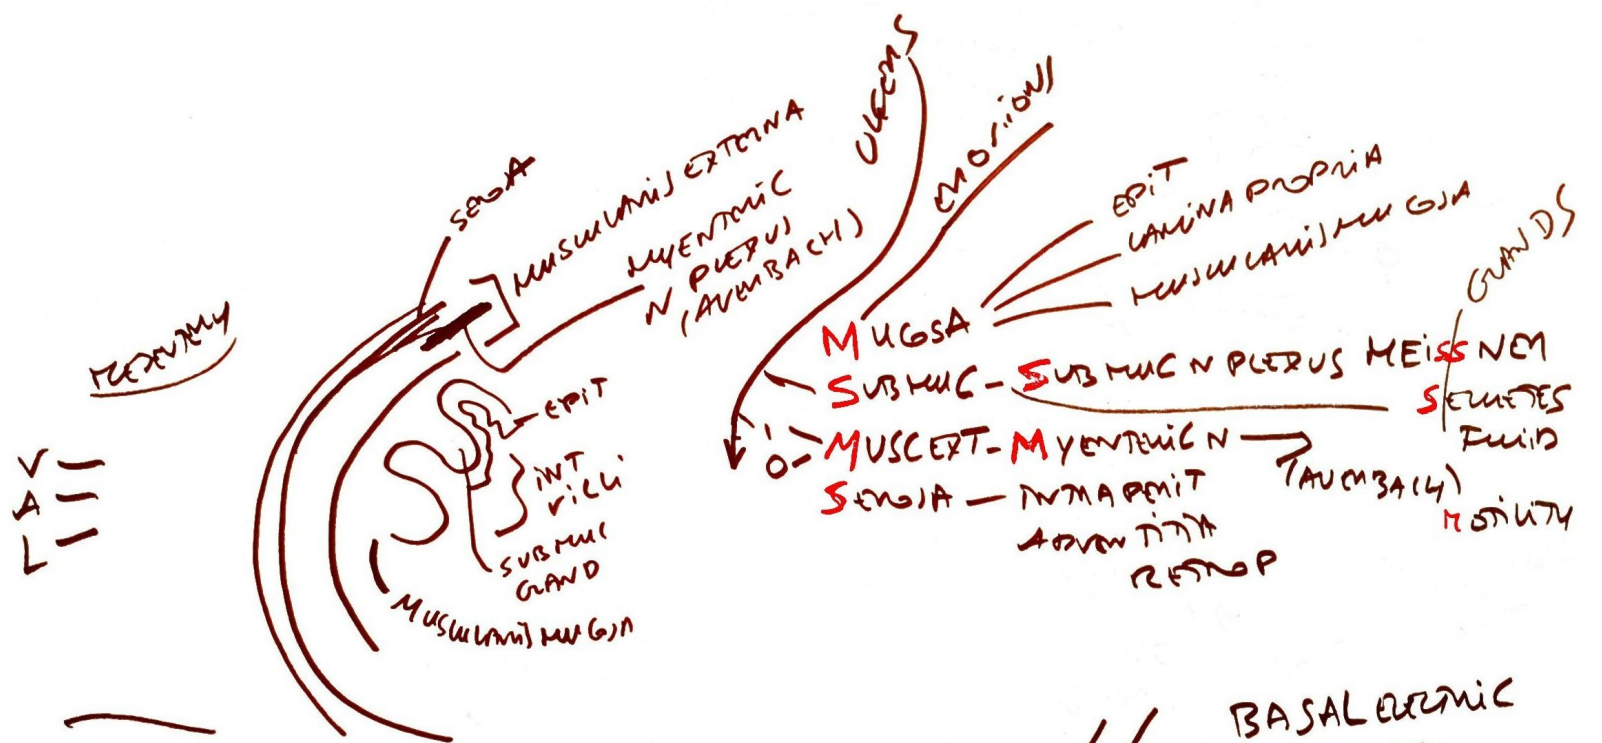 ULCERS
EROSIONS
SEROSA
MUSCULARIS EXTERNA
MYENTERIC
N PLEXUS
(AUERBACH)
MESENTERY
V
A
L
EPIT
INT
VILLI
SUBMUC
GLAND
MUSCULARIS MUCOSA
EPIT
LAMINA PROPRIA
MUSCULARIS MUCOSA
GLANDS
MUCOSA
SUBMUC - SUBMUC N PLEXUS MEISSNER
SECRETES
FLUID
I
O
MUSC EXT - MYENTERIC N
(AUERBACH)
MOTILITY
SEROSA - INTRAPERIT
ADVENTITIA
RETROP
BASAL ELECTRIC